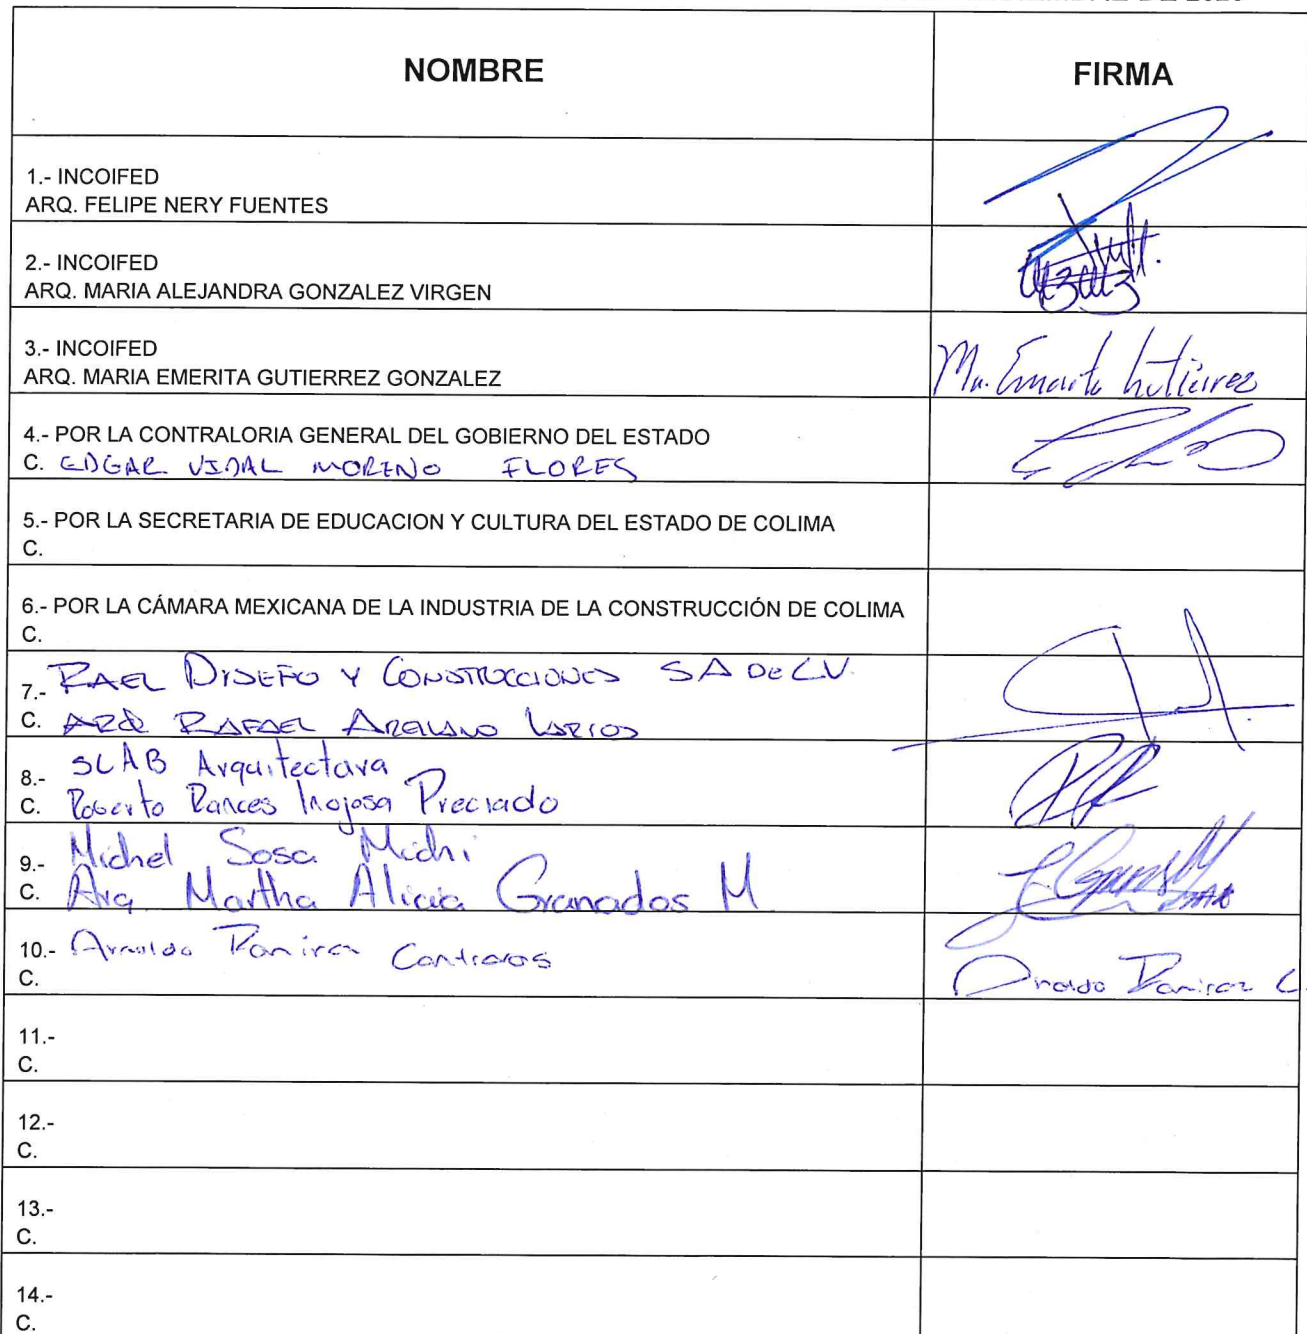 NOMBRE
FIRMA
1.- INCOIFED
ARQ. FELIPE NERY FUENTES
2.- INCOIFED
ARQ. MARIA ALEJANDRA GONZALEZ VIRGEN
3.- INCOIFED
ARQ. MARIA EMERITA GUTIERREZ GONZALEZ
Ma. Emerita Gutierrez
4.- POR LA CONTRALORIA GENERAL DEL GOBIERNO DEL ESTADO
C. EDGAR VIDAL MORENO FLORES
5.- POR LA SECRETARIA DE EDUCACION Y CULTURA DEL ESTADO DE COLIMA
C.
6.- POR LA CÁMARA MEXICANA DE LA INDUSTRIA DE LA CONSTRUCCIÓN DE COLIMA
C.
7.- RAEL DISEÑO Y CONSTRUCCIONES SA DE CV.
C. ARQ RAFAEL ARELLANO LARIOS
8.- SLAB Arquitectura
C. Roberto Rances Inojosa Preciado
9.- Michel Sosa
C. Arq Martha Alicia Granados M
10.- Arnoldo Ramirez Contreras
C.
Arnoldo Ramirez C.
11.-
C.
12.-
C.
13.-
C.
14.-
C.